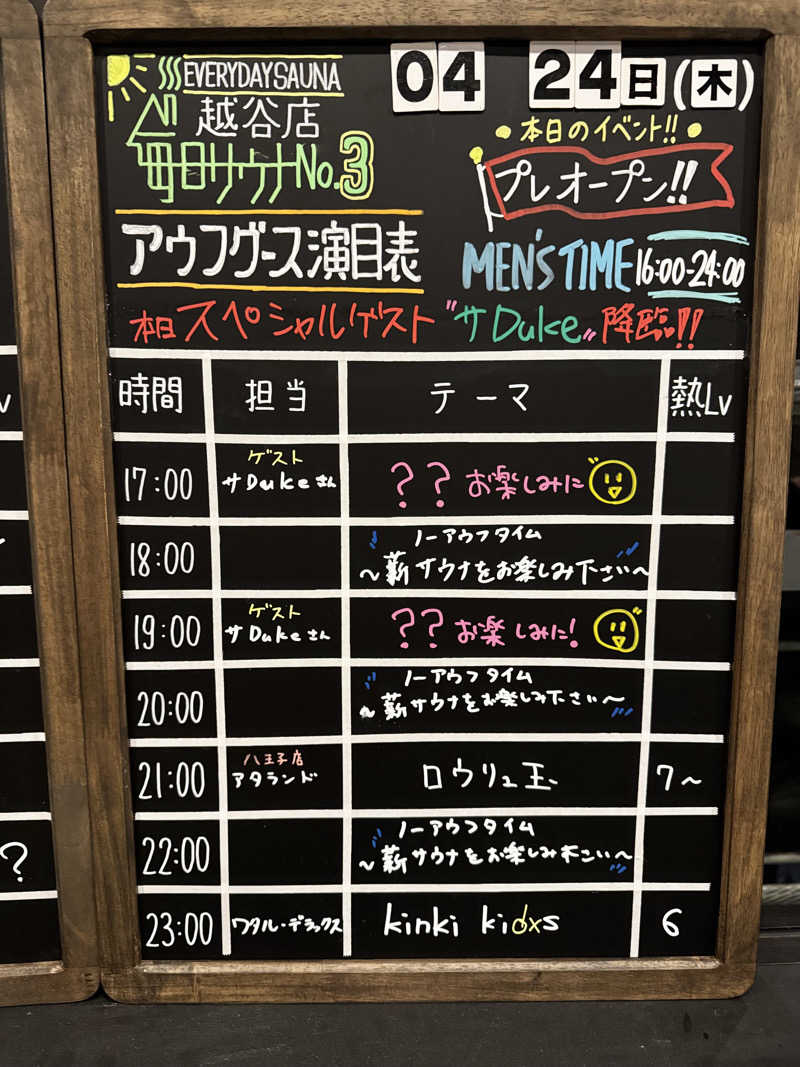 EVERYDAY SAUNA
04 24日(木)
越谷店
毎日サウナNo.3
本日のイベント!!
プレオープン!!
アウフグース演目表
MEN'S TIME 16:00-24:00
本日スペシャルゲスト"サDuke"降臨!!
時間 担当 テーマ 熱Lv
17:00 ゲスト サDukeさん ?? お楽しみに
18:00 ノーアウフタイム
〜薪サウナをお楽しみ下さい〜
19:00 ゲスト サDukeさん ?? お楽しみに!
20:00 ノーアウフタイム
〜薪サウナをお楽しみ下さい〜
21:00 八王子店 アタランド ロウリュ玉 7〜
22:00 ノーアウフタイム
〜薪サウナをお楽しみ下さい〜
23:00 ワタル・デラックス kinki kidxs 6
v
?